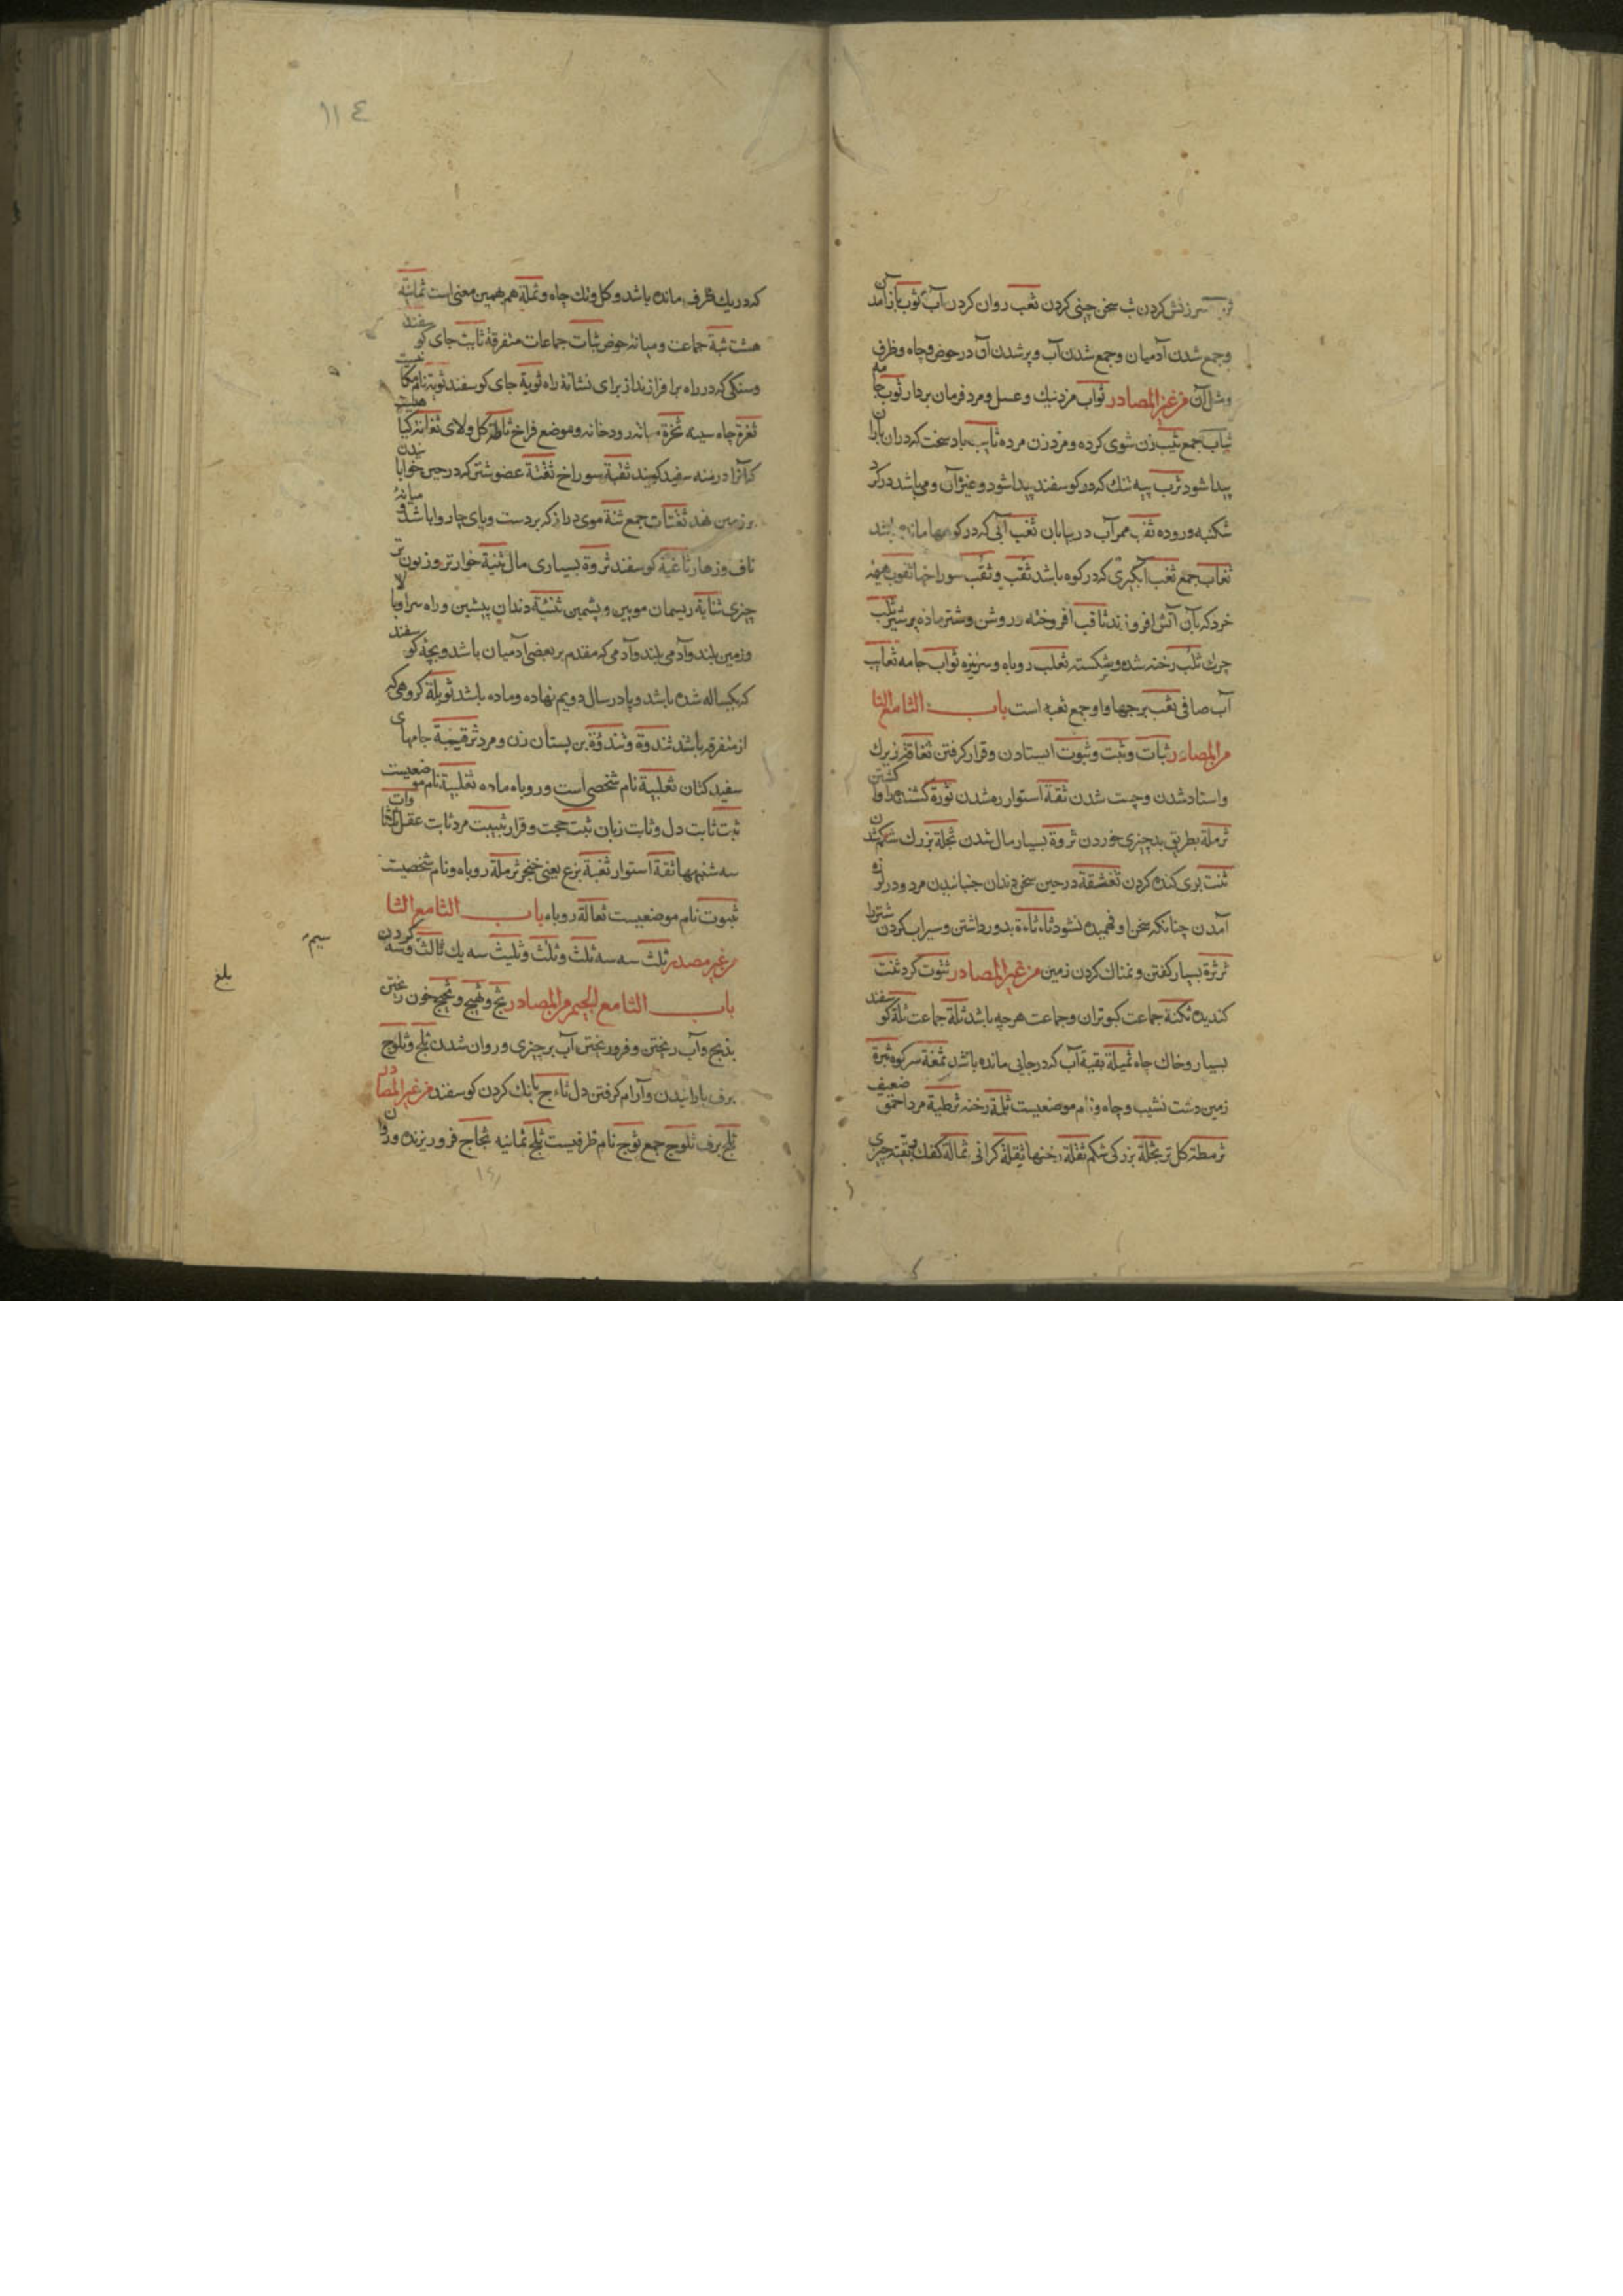 سرزنش کردن ثب سخن چینی کردن ثعب روان کردن آب ثوب بازآمدن
و جمع شدن آدمیان و جمع شدن آب و پر شدن آن در حوض و چاه و ظرف
و مثل آن من غیر المصادر ثواب مزد نیک و عسل و مرد فرمان بردار ثوب جامه
ثیاب جمع ثیب زن شوی کرده و مرد زن مرده ثایب باد سخت که در آن باران
پیدا شود ثرب پیه تنک که در کوسفند پیدا شود و غیر آن و می باشد در کرد
شکنبه و روده ثقب ممر آب در بیابان ثغب آبی که در کوهها مانده باشد
ثغاب جمع ثغب آبگیری که در کوه باشد ثقب و ثقب سوراخها ثقوب هیمه
خرد که بآن آتش افروزند ثاقب افروخته و روشن و شتر ماده پر شیر ثلب
چرک ثلب رخنه شده و شکسته ثعلب روباه و سر نیزه ثواب جامه ثعاب
آب صافی ثعب برجها و او جمع ثعبه است باب الثا مع التا
من المصادر ثبات و ثبت و ثبوت ایستادن و قرار گرفتن ثقافة زیرک
و استاد شدن و چست شدن ثقة استوار شدن ثورة کشنده را وا کشتن
ثرملة بطریق بد چیزی خوردن ثروة بسیار مال شدن ثجلة بزرک شکم شدن
ثنت بری کنده کردن ثغشقة در حین سخن دندان جنبانیدن مرد و در لرزه
آمدن چنانکه سخن او فهمیده نشود ثاءثاءة بدور داشتن و سیراب کردن شتر را
ثرثرة بسیار کفتن و نمناک کردن زمین من غیر المصادر ثنوت کرد ثنت
کندیده ثکنة جماعت کبوتران و جماعت هر چه باشد ثلة جماعت ثلة کوسفند
بسیار و خاک چاه ثمیلة بقیة آب که در جایی مانده باشد ثمغة سر کوه ثبرة
زمین دشت نشیب و چاه و نام موضعیست ثلمة رخنه ثرطیة مرد احمق ضعیف
ثرمطة کل تر ثجلة بزرکی شکم ثقلة رخنها ثقیلة کرانی ثمالة کفک و بقیه چیزی
۱۱٤
که در یک طرف مانده باشد و کل و تک چاه و ثملة هم بهمین معنی است ثمانیة
هشت ثبة جماعت و میانه حوض ثبات جماعات متفرقة ثابت جای کوسفند
و سنکی که در راه برافرازند از برای نشانة راه ثویة جای کوسفند ثویة نام مکانیست
ثغرة چاه سینه ثجرة میانه رودخانه و موضع فراخ ثاطة کل و لای ثغامة کیاهیست
که آنرا درمنه سفید کویند ثقبة سوراخ ثفنة عضو شتر که در حین خوابانیدن
بر زمین نهد ثفنات جمع ثنة موی دراز که بر دست و پای چاروا باشد و میانه
ناف و زهار ثاغیة کوسفند ثروة بسیاری مال ثنیة خوارتر و زبون تر
چیزی ثنایة ریسمان مویین و پشمین ثنیة دندان پیشین و راه سر بالا
و زمین بلند و آدمی بلند و آدمی که مقدم بر بعضی آدمیان باشد و بچه کوسفند
که یکساله شده باشد و پا در سال دویم نهاده و ماده باشد ثویلة کروهی که
از متفرقه باشد ثندوة و ثندؤة بن پستان زن و مرد ثرقبیة جامهای
سفید کتان ثعلبة نام شخصی است و روباه ماده ثعلبیة نام موضعیست
ثبت ثابت دل و ثابت زبان ثبت حجت و قرار ثبیت مرد ثابت عقل ثلثاوات
سه شنبهها ثقة استوار ثغبة بزع یعنی خنجر ثرملة روباه و نام شخصیست
ثبوت نام موضعیست ثعالة روباه باب الثا مع الثا
من غیر مصدر ثلث سه سه ثلث و ثلث و ثلیث سه یک ثالث و سه کردن
باب الثا مع الجیم من المصادر ثج و ثجیج و ثجیج خون ریختن
بذبح و آب ریختن و فرو ریختن آب بر چیزی و روان شدن ثلج و ثلوج
برف بارانیدن و آرام کرفتن دل ثاءج بانک کردن کوسفند من غیر المصادر
ثلج برف ثلوج جمع ثوج نام ظرفیست ثلج ثمانیه ثجاج فرو ریزنده و روان
بلغ